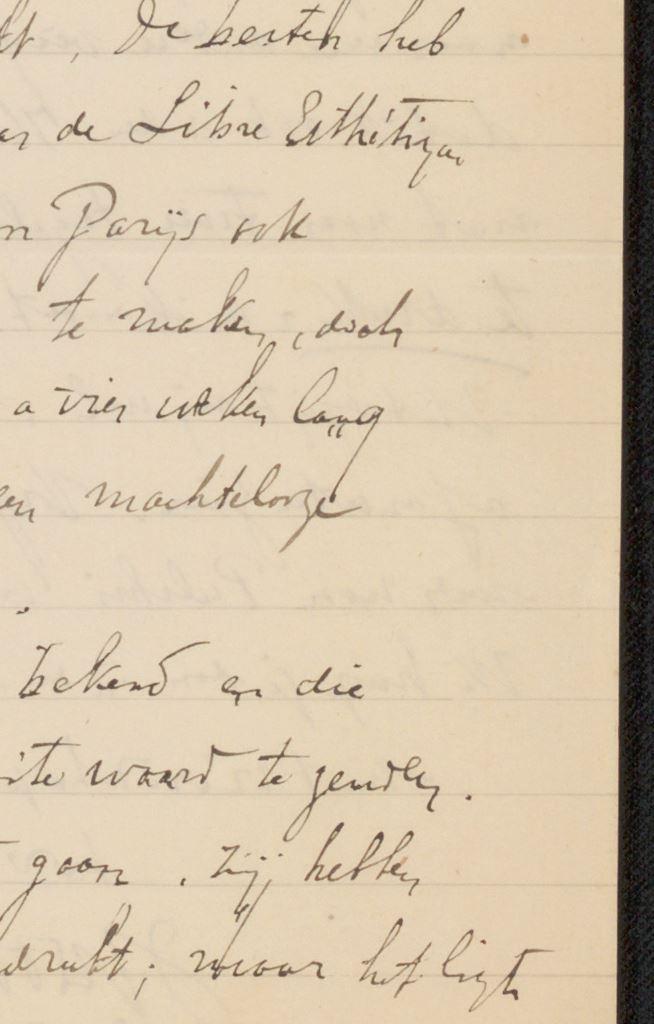 , De besten heb
de Libre Esthétique
Parijs ook
te maken, doch
a vier weken lang
machtelooze
bekend en die
waard te zenden.
gaan. zij hebben
drukt; maar het ligt